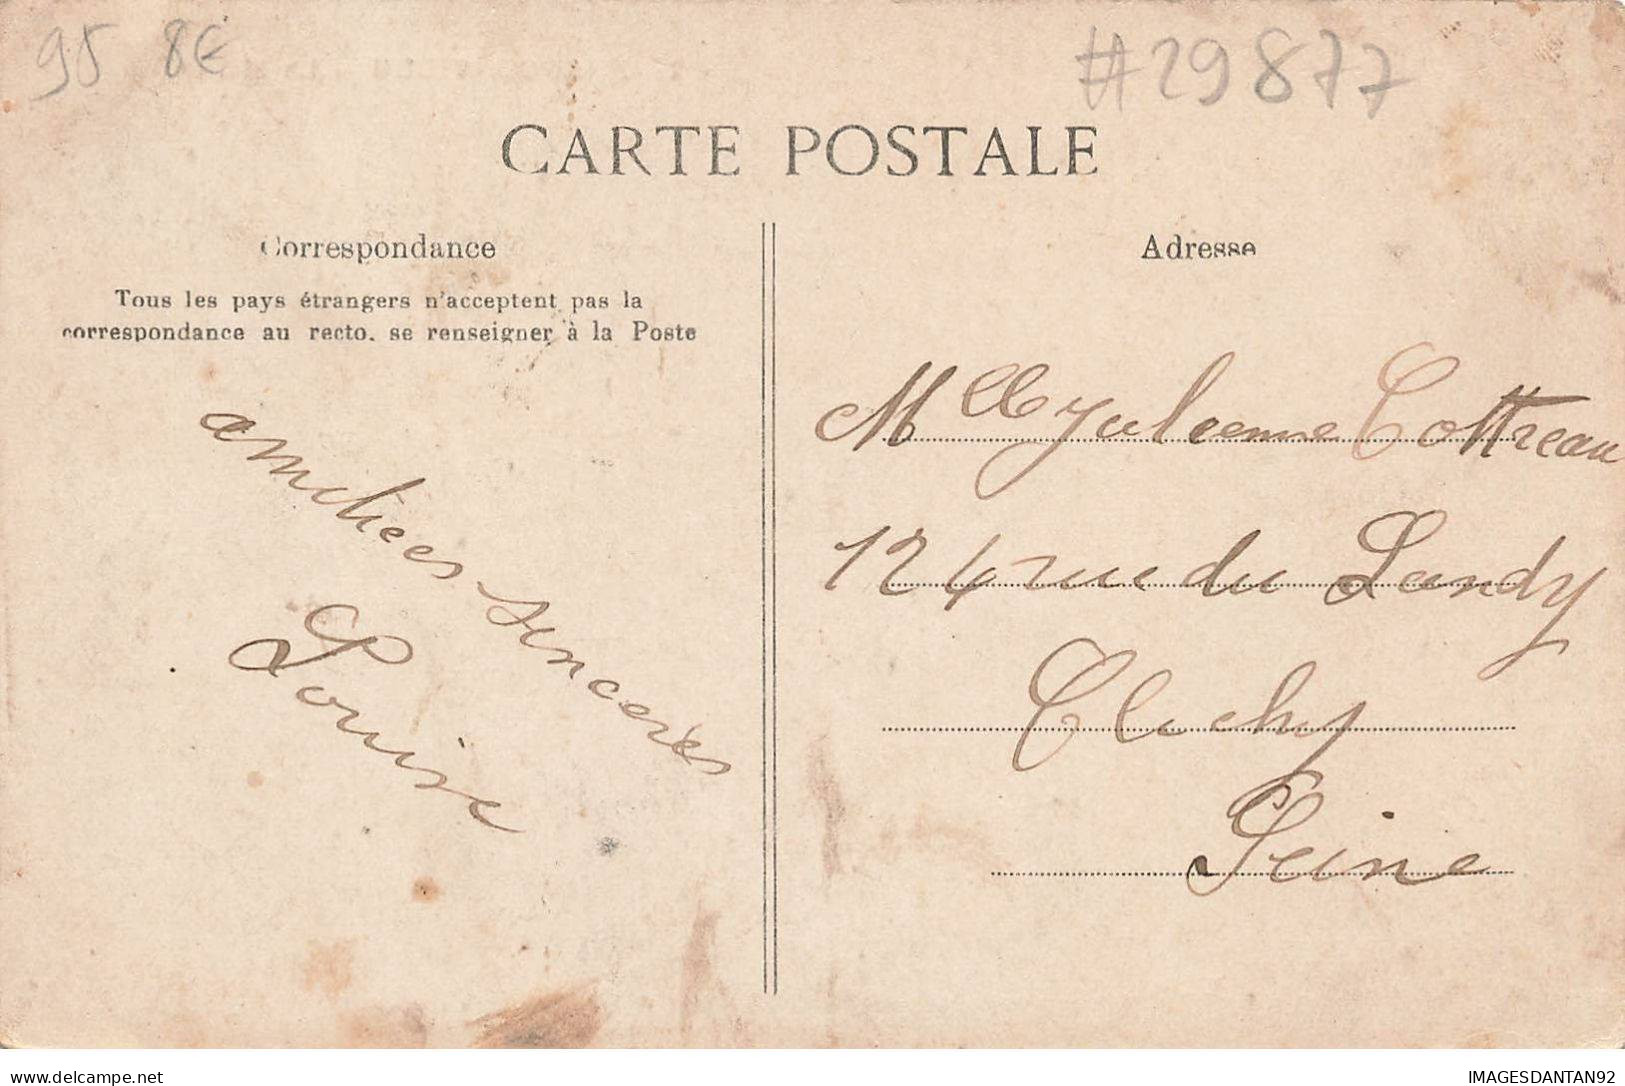 95 8€
#29877
CARTE POSTALE
Correspondance
Tous les pays étrangers n'acceptent pas la
correspondance au recto. se renseigner à la Poste
amitiées sincères
Louise
Adresse
Mlle Julienne Cottreau
124 rue du Landy
Clichy
Seine
delcampe.net
IMAGESDANTAN92